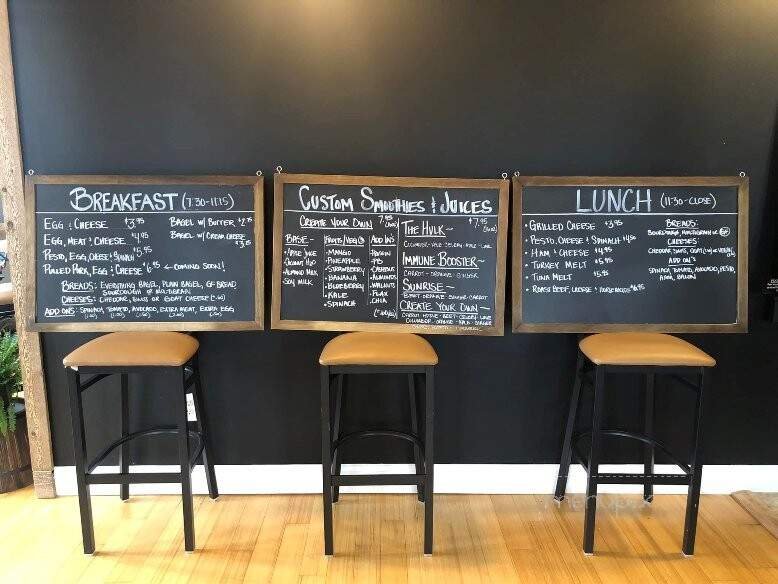 BREAKFAST (7:30-11:15)
EGG & CHEESE $3.95
EGG, MEAT & CHEESE $4.95
PESTO, EGG, CHEESE & SPINACH $5.95
PULLED PORK, EGG & CHEESE $6.95 ← COMING SOON!
BAGEL W/ BUTTER
BAGEL W/ CREAM CHEESE
BREADS: EVERYTHING BAGEL, PLAIN BAGEL, GF BREAD
SOURDOUGH OR MULTIGRAIN
CHEESES: CHEDDAR, SWISS OR GOAT CHEESE
ADD ONS: SPINACH, TOMATO, AVOCADO, EXTRA MEAT, EXTRA EGG
CUSTOM SMOOTHIES & JUICES
CREATE YOUR OWN 7.95
BASE-
-APPLE JUICE
-COCONUT H2O
-ALMOND MILK
-SOY MILK
FRUITS/VEG
-MANGO
-PINEAPPLE
-STRAWBERRY
-BANANA
-BLUEBERRY
-KALE
-SPINACH
ADD INS
-PROTEIN
-PB
-CASHEWS
-ALMONDS
-WALNUTS
-FLAX
-CHIA
$7.95
THE HULK-
CUCUMBER-KALE-CELERY-APPLE-LIME
IMMUNE BOOSTER-
CARROT-ORANGE-GINGER
SUNRISE-
BEET-ORANGE-GINGER-CARROT
CREATE YOUR OWN-
LUNCH (11:30-CLOSE)
• GRILLED CHEESE $3.95
• PESTO, CHEESE & SPINACH $4.50
• HAM & CHEESE $4.95
• TURKEY MELT $5.95
• TUNA MELT $5.95
• ROAST BEEF, CHEESE & $6.95
BREADS:
SOURDOUGH, MULTIGRAIN OR GF
CHEESES:
CHEDDAR, SWISS, GOAT OR VEGAN
ADD ON'S
SPINACH, TOMATO, AVOCADO, PESTO,
BACON